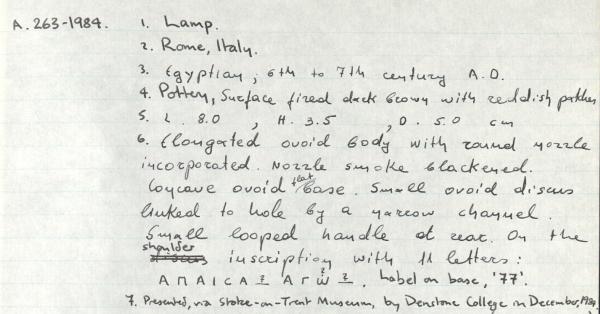 A. 263-1984. 1. Lamp.
2. Rome, Italy.
3. Egyptian, 6th to 7th century A.D.
4. Pottery, Surface fired dark brown with reddish patches
5. L. 8.0 , H. 3.5 , D. 5.0 cm
6. Elongated ovoid body with round nozzle
incorporated. Nozzle smoke blackened.
Concave ovoid flat base. Small ovoid discus
linked to hole by a narrow channel.
Small looped handle at rear. On the
shoulder inscription with 11 letters:
ΑΠΑΙCΑ ? ΑΓѠ ?. Label on base, '77'.
7. Presented, via Stoke-on-Trent Museum, by Denstone College in December, 1984